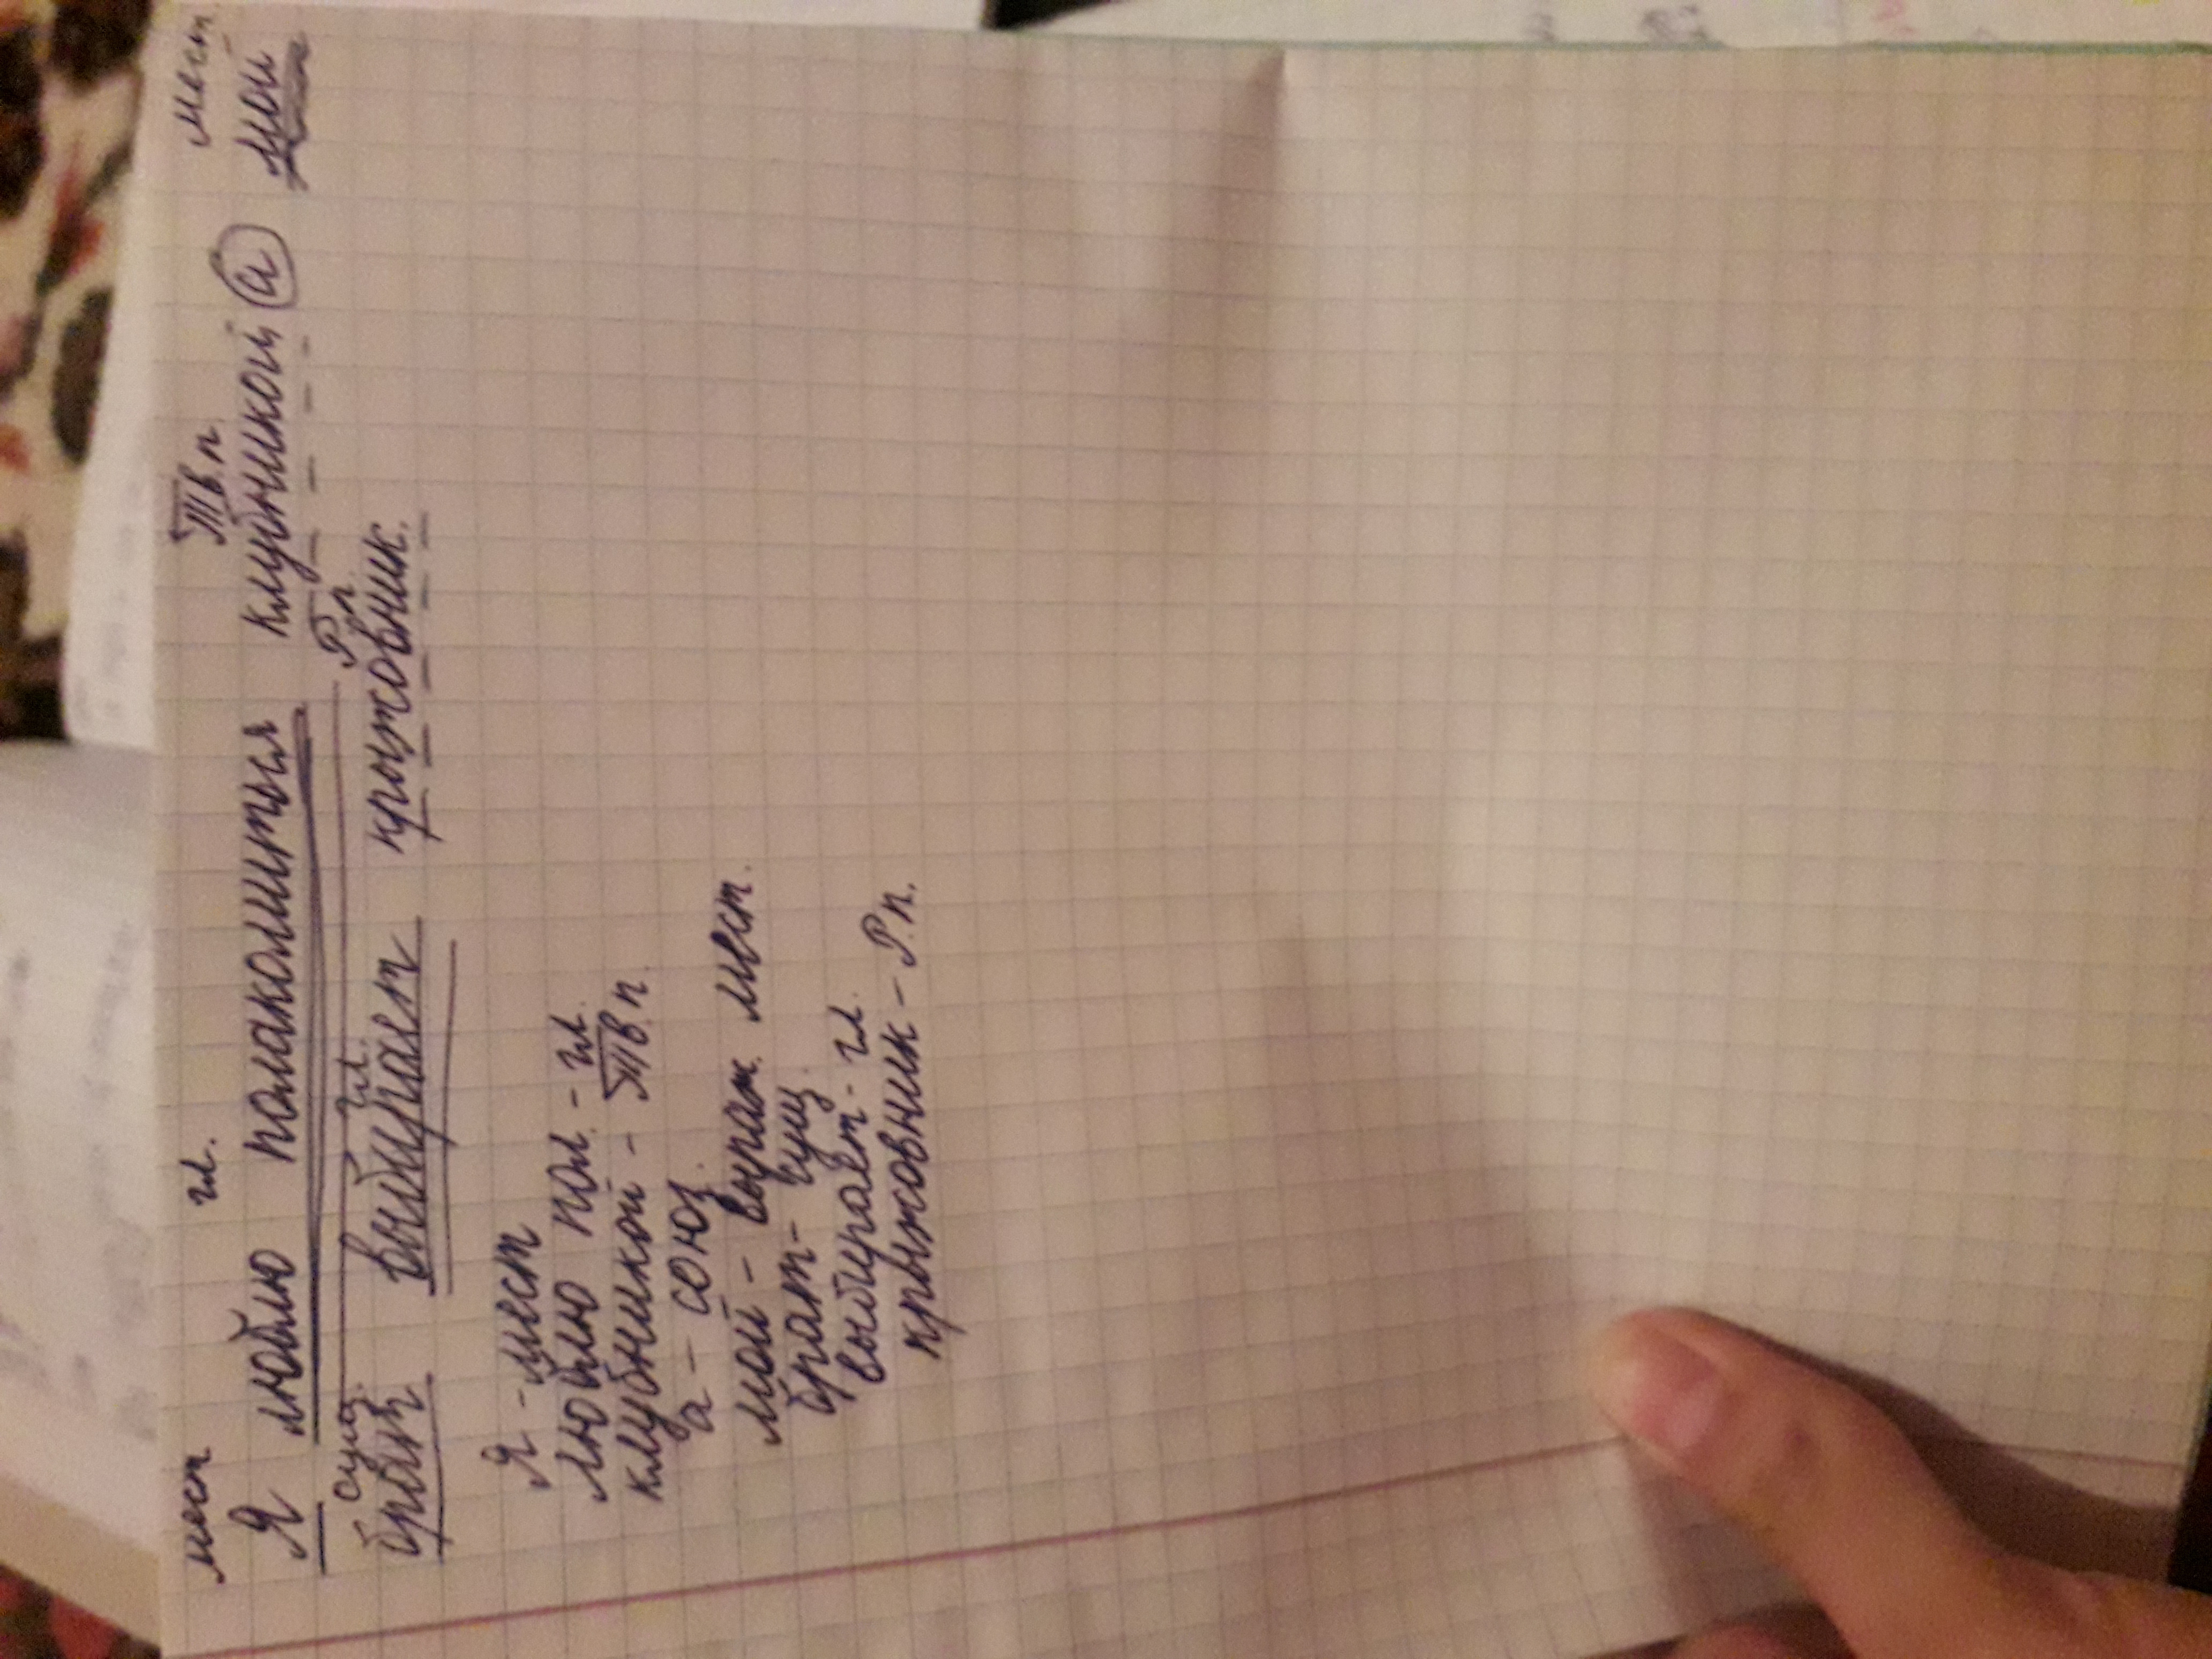 мест гл. Тв.п. мест.
Я люблю полакомиться клубникой, а мой
сущ. гл. Р.п.
брат выбирает крыжовник.
Я - мест
люблю пол. - гл.
клубникой - Тв.п.
а - союз.
мой - мест.
брат - сущ.
выбирает - гл.
крыжовник - Р.п.